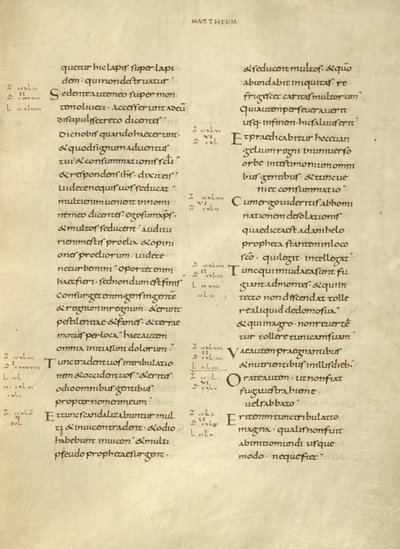 MATTHEUM
quetur hic lapis super lapi
dem · qui non destruatur
Sedente autem eo super mon
tem oliveti · accesserunt ad eū
discipuli secreto dicentes
Dic nobis quando haec erunt ·
& quod signum adventus
tui & consummationis scli
& respondens ihs · dixit eis
videte nequis vos seducat
multi enim venient in nomi
ne meo dicentes · ego sum xps ·
& multos seducent · auditu
ri enim estis proelia & opini
ones proeliorum · videte
ne turbemini · oportet enim
haec fieri · sed nondum est finis
consurget enim gens in gente
& regnum in regnum · & erunt
pestilentiae & fames · & terrae
motus per loca · haec autem
omnia initia sunt dolorum
Tunc tradent vos in tribulatio
nem & occident vos · & eritis
odio omnibus gentibus
propter nomen meum
Et tunc scandalizabuntur mul
ti · & invicem tradent · & odio
habebunt invicem · & multi
pseudoprophetae surgent ·
& seducent multos · & quō
abundabit iniquitas · re
frigescet caritas multorum
qui autem perseveraverit
usq; in finem · hic salvus erit
Et praedicabitur hoc euan
gelium regni in universo
orbe · in testimonium omni
bus gentibus · & tunc ve
niet consummatio
Cum ergo videritis abhomi
nationem desolationis
quae dicta est a danihelo
propheta stantem in loco
sco · qui legit · intellegat
Tunc qui in iudaea sunt fu
giant ad montes · & qui in
tecto non discendat tolle
re aliquid de domo sua
& qui in agro · non revertē
tur tollere tunicam suam
Vae autem praegnantibus
& nutrientibus in illis dieb;
Orate autem · ut non fiat
fuga vestra hieme
vel sabbato
Erit enim tunc tribulatio
magna · qualis non fuit
ab initio mundi usque
modo · neque fiet